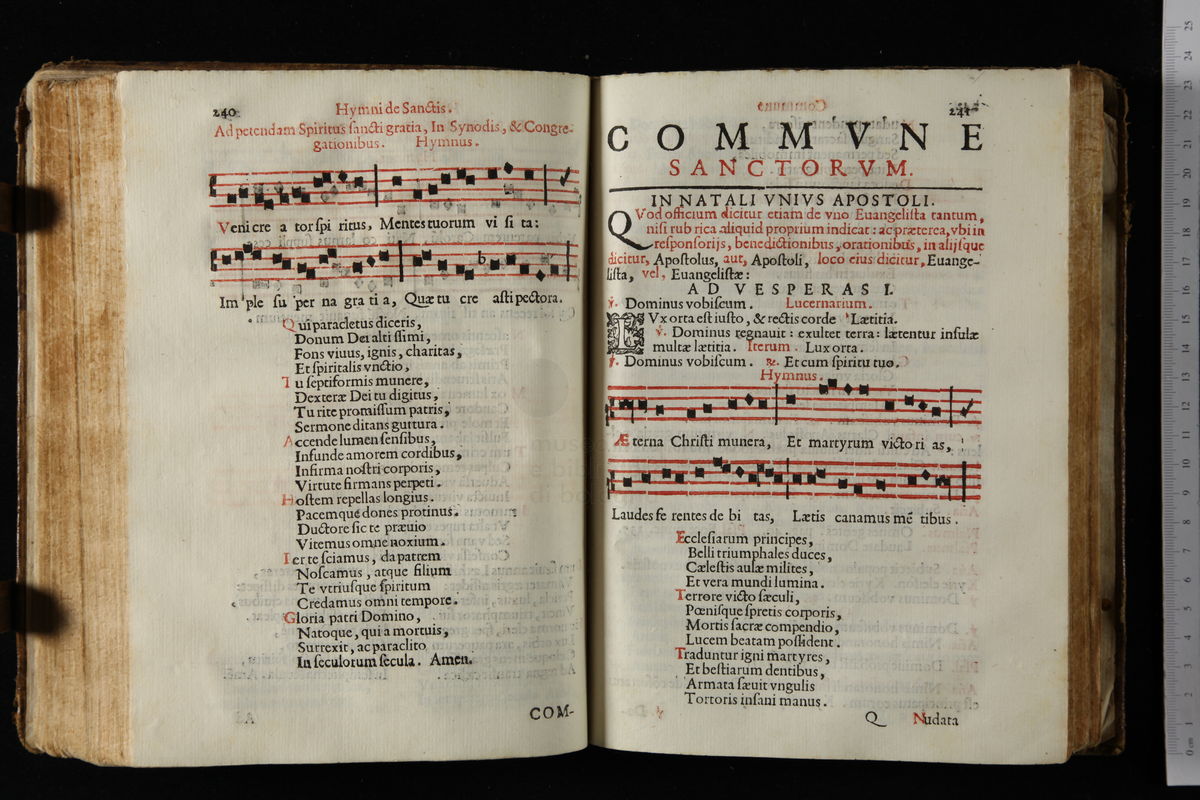 240
Hymni de Sanctis.
Ad petendam Spiritus sancti gratia, In Synodis, & Congre-
gationibus. Hymnus.
Veni cre a tor spi ritus, Mentes tuorum vi si ta:
Im ple su per na gra ti a, Quæ tu cre asti pectora.
Qui paracletus diceris,
Donum Dei altissimi,
Fons viuus, ignis, charitas,
Et spiritalis vnctio,
Tu septiformis munere,
Dexteræ Dei tu digitus,
Tu rite promissum patris,
Sermone ditans guttura.
Accende lumen sensibus,
Infunde amorem cordibus,
Infirma nostri corporis,
Virtute firmans perpeti.
Hostem repellas longius.
Pacemque dones protinus.
Ductore sic te præuio
Vitemus omne noxium.
Per te sciamus, da patrem
Noscamus, atque filium
Te vtriusque spiritum
Credamus omni tempore.
Gloria patri Domino,
Natoque, qui a mortuis,
Surrexit, ac paraclito
In seculorum secula. Amen.
COM-
241
COMMVNE
SANCTORVM.
IN NATALI VNIVS APOSTOLI.
QVod officium dicitur etiam de vno Euangelista tantum,
nisi rubrica aliquid proprium indicat: ac præterea, vbi in
responsorijs, benedictionibus, orationibus, in alijsque
dicitur, Apostolus, aut, Apostoli, loco eius dicitur, Euange-
lista, vel, Euangelistæ:
AD VESPERAS I.
℣. Dominus vobiscum. Lucernarium.
LVx orta est iusto, & rectis corde Lætitia.
℣. Dominus regnauit: exultet terra: lætentur insulæ
multæ lætitia. Iterum. Lux orta.
℣. Dominus vobiscum. ℟. Et cum spiritu tuo.
Hymnus.
Æ terna Christi munera, Et martyrum victo ri as,
Laudes fe rentes de bi tas, Lætis canamus mẽ tibus.
Ecclesiarum principes,
Belli triumphales duces,
Cælestis aulæ milites,
Et vera mundi lumina.
Terrore victo sæculi,
Pœnisque spretis corporis,
Mortis sacræ compendio,
Lucem beatam possident.
Traduntur igni martyres,
Et bestiarum dentibus,
Armata sæuit vngulis
Tortoris insani manus.
Q Nudata